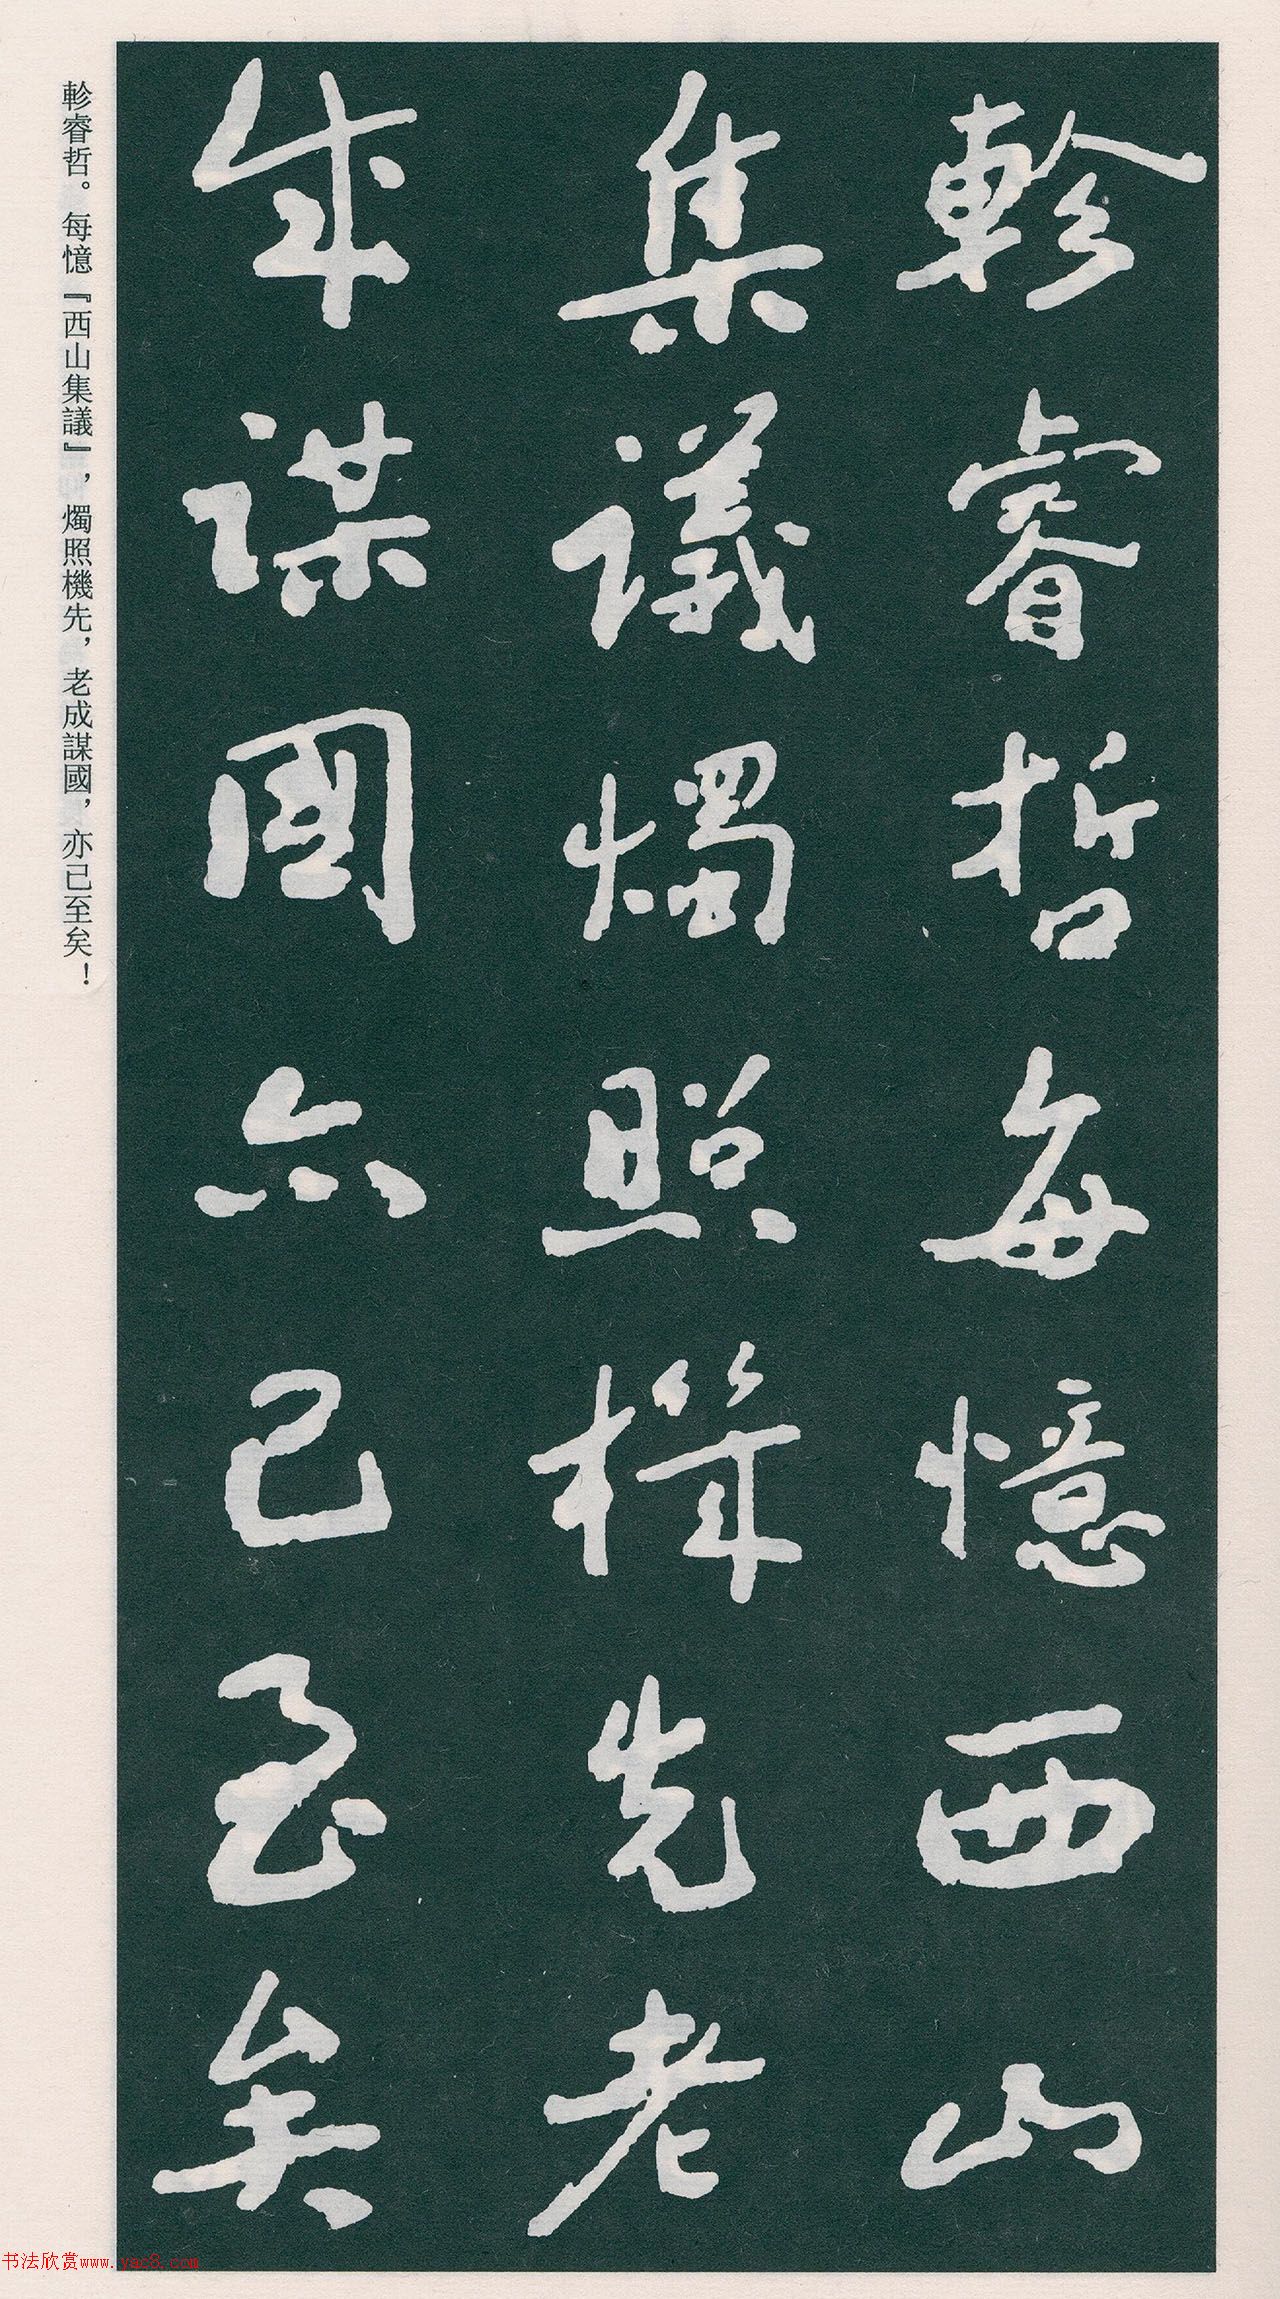 軫睿哲每憶西山
集議燭照機先老
成謀國亦已至矣
軫睿哲。每憶『西山集議』，燭照機先，老成謀國，亦已至矣！
书法欣赏www.yac8.com